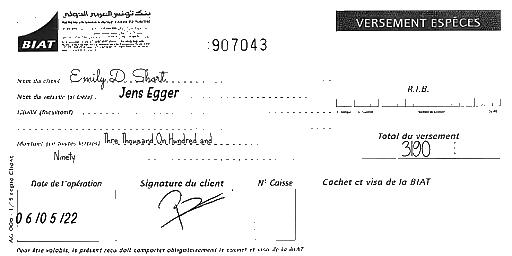 بنك تونس العربي الدولي
BIAT
VERSEMENT ESPÈCES
907043
Nom du client Emily D. Short
Jens Egger
R.I.B.
Montant (en toutes lettres) Thre Thousand On Hundred and
Ninety
Total du versement
3190
Date de l'opération
Signature du client
N° Caisse
Cachet et visa de la BIAT
06/05/22
Pour être valable, le présent reçu doit comporter obligatoirement le cachet et visa de la BIAT